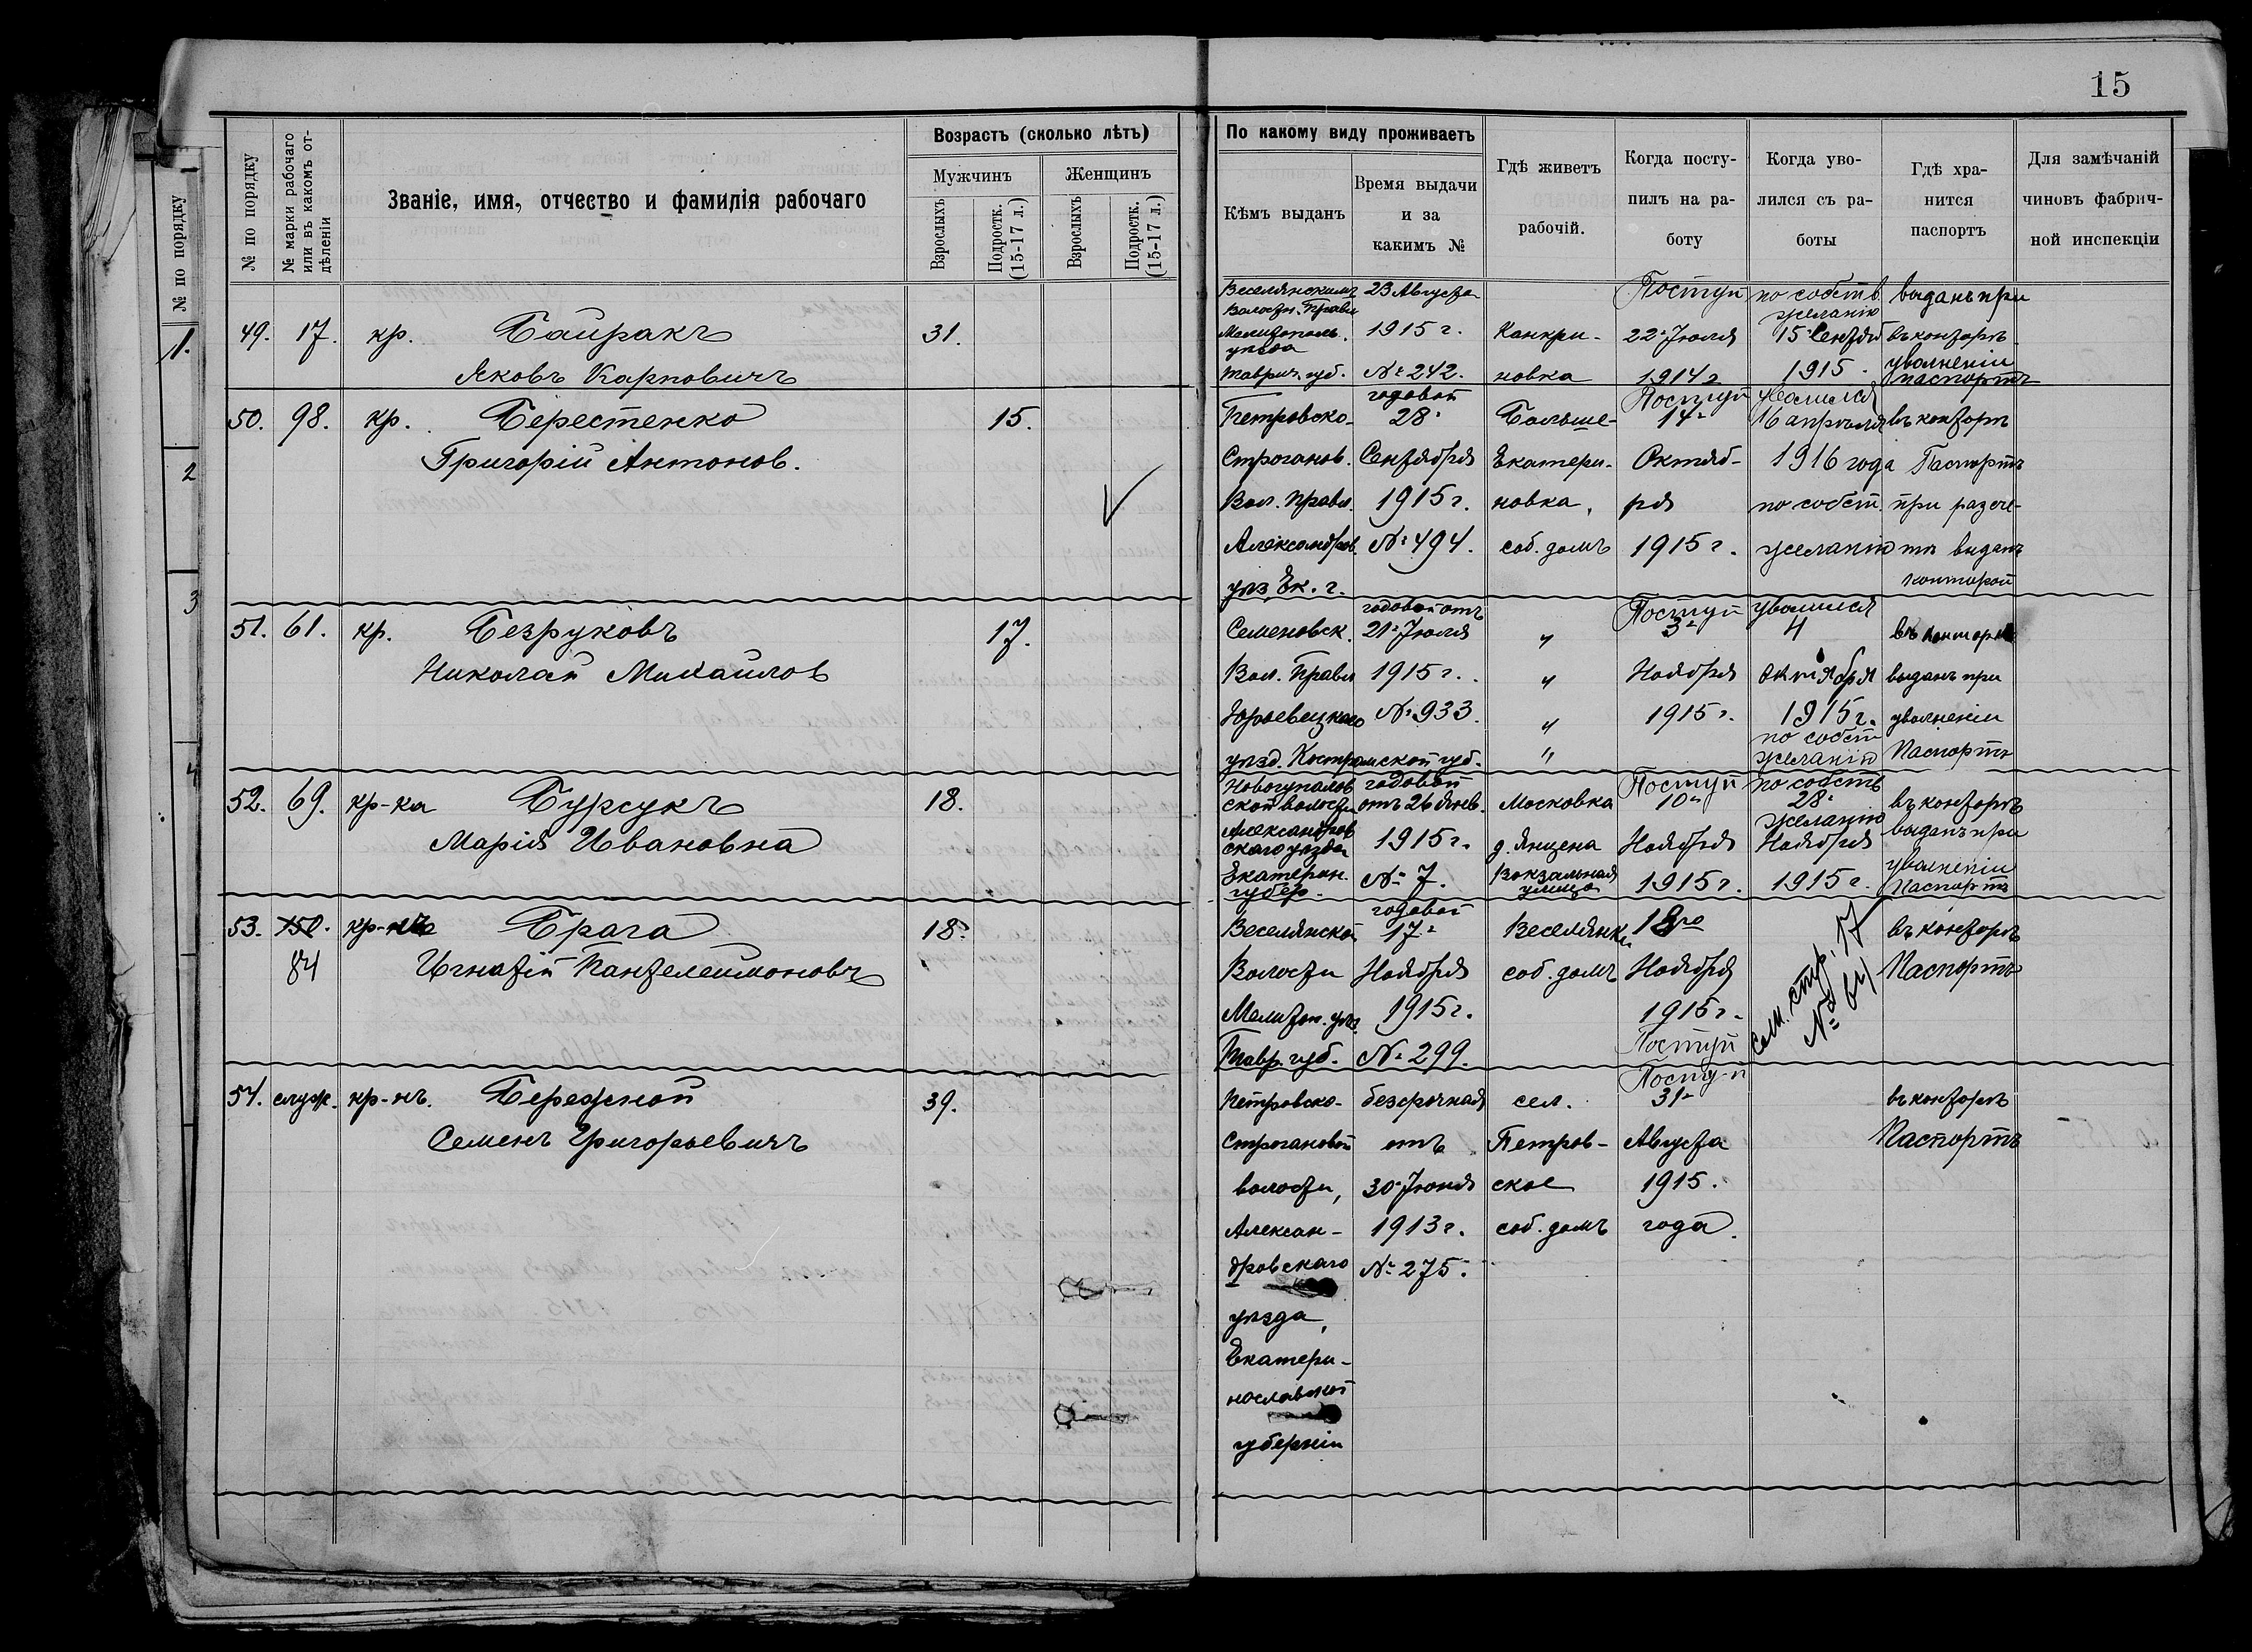 15
№ по порядку
№ по порядку
№ марки рабочаго или въ какомъ отдѣленіи
Званіе, имя, отчество и фамилія рабочаго
Возрастъ (сколько лѣтъ)
Мужчинъ
Женщинъ
Взрослыхъ
Подростк. (15-17 л.)
Взрослыхъ
Подростк. (15-17 л.)
По какому виду проживаетъ
Кѣмъ выданъ
Время выдачи
и за
какимъ №
Гдѣ живетъ
рабочій.
Когда посту-
пилъ на ра-
боту
Когда уво-
лился съ ра-
боты
Гдѣ хра-
нится
паспортъ
Для замѣчаній
чиновъ фабрич-
ной инспекціи
1.
2
3
4
49. 17. кр. Байракъ 31.
Яковъ Карповичъ
Веселянскимъ
Волостн. Правл
Мелитополь.
уѣзда
Таврич. губ.
23 Августа
1915 г.
№ 242.
Канкри-
новка
Поступ
22 Іюля
1914 г
по собств.
желанію
15 Сентяб
1915.
выданъ при
въ конторѣ
уволненіи
паспортъ
50. 98. кр. Берестенко 15.
Григорій Антонов.
Петровско-
Строганов.
Вол. Правл.
Александров.
уѣз. Ек. г.
годовой
28
Сентября
1915 г.
№ 494.
Больше-
Екатери-
новка,
соб. домъ
Поступ
14
Октяб-
ря
1915 г.
уволился
16 апрѣля
1916 года
по собст.
желанію
въ конторѣ
Паспортъ
при разсче-
тѣ выданъ
конторой
51. 61. кр. Безруковъ 17.
Николай Михайлов
Семеновск.
Вол. Правл
Юрьевецкаго
уѣзд. Костромской губ.
годовой отъ
21 Іюля
1915 г.
№ 933.
"
"
"
"
Поступ
3
Ноября
1915 г.
уволился
4
октября
1915 г.
по собст
желанію
въ конторѣ
выданъ при
уволненіи
Паспортъ
52. 69. кр-ка Бурсукъ 18.
Марія Ивановна
Новогупалов
ской волости
Александров
скаго уѣзда
Екатерин.
губер.
годовой
отъ 26 янв.
1915 г.
№ 7.
Московка
д. Янцена
Вокзальная
улица
Поступ
10
Ноября
1915 г.
по собств
28
желанію
Ноября
1915 г.
въ конторѣ
выданъ при
уволненіи
Паспортъ
53. 150. кр-нъ Брага 18.
84 Игнатій Пантелеимоновъ
Веселянской
Волости
Мелитоп. уѣз.
Тавр. губ.
годовой
17
Ноября
1915 г.
№ 299.
Веселянки
соб. домъ
18го
Ноября
1915 г.
Поступ
См. стр. 17
№ 64
въ конторѣ
Паспортъ
54. служ. кр-нъ. Бережной 39.
Семенъ Григорьевичъ
Петровско-
Строгановой
волости,
Алексан-
дровскаго
уѣзда,
Екатери-
нославской
губерніи
безсрочная
отъ
30 Іюня
1913 г.
№ 275.
сел.
Петров-
ское
соб. домъ
Поступ
31
Августа
1915.
года.
въ конторѣ
Паспортъ